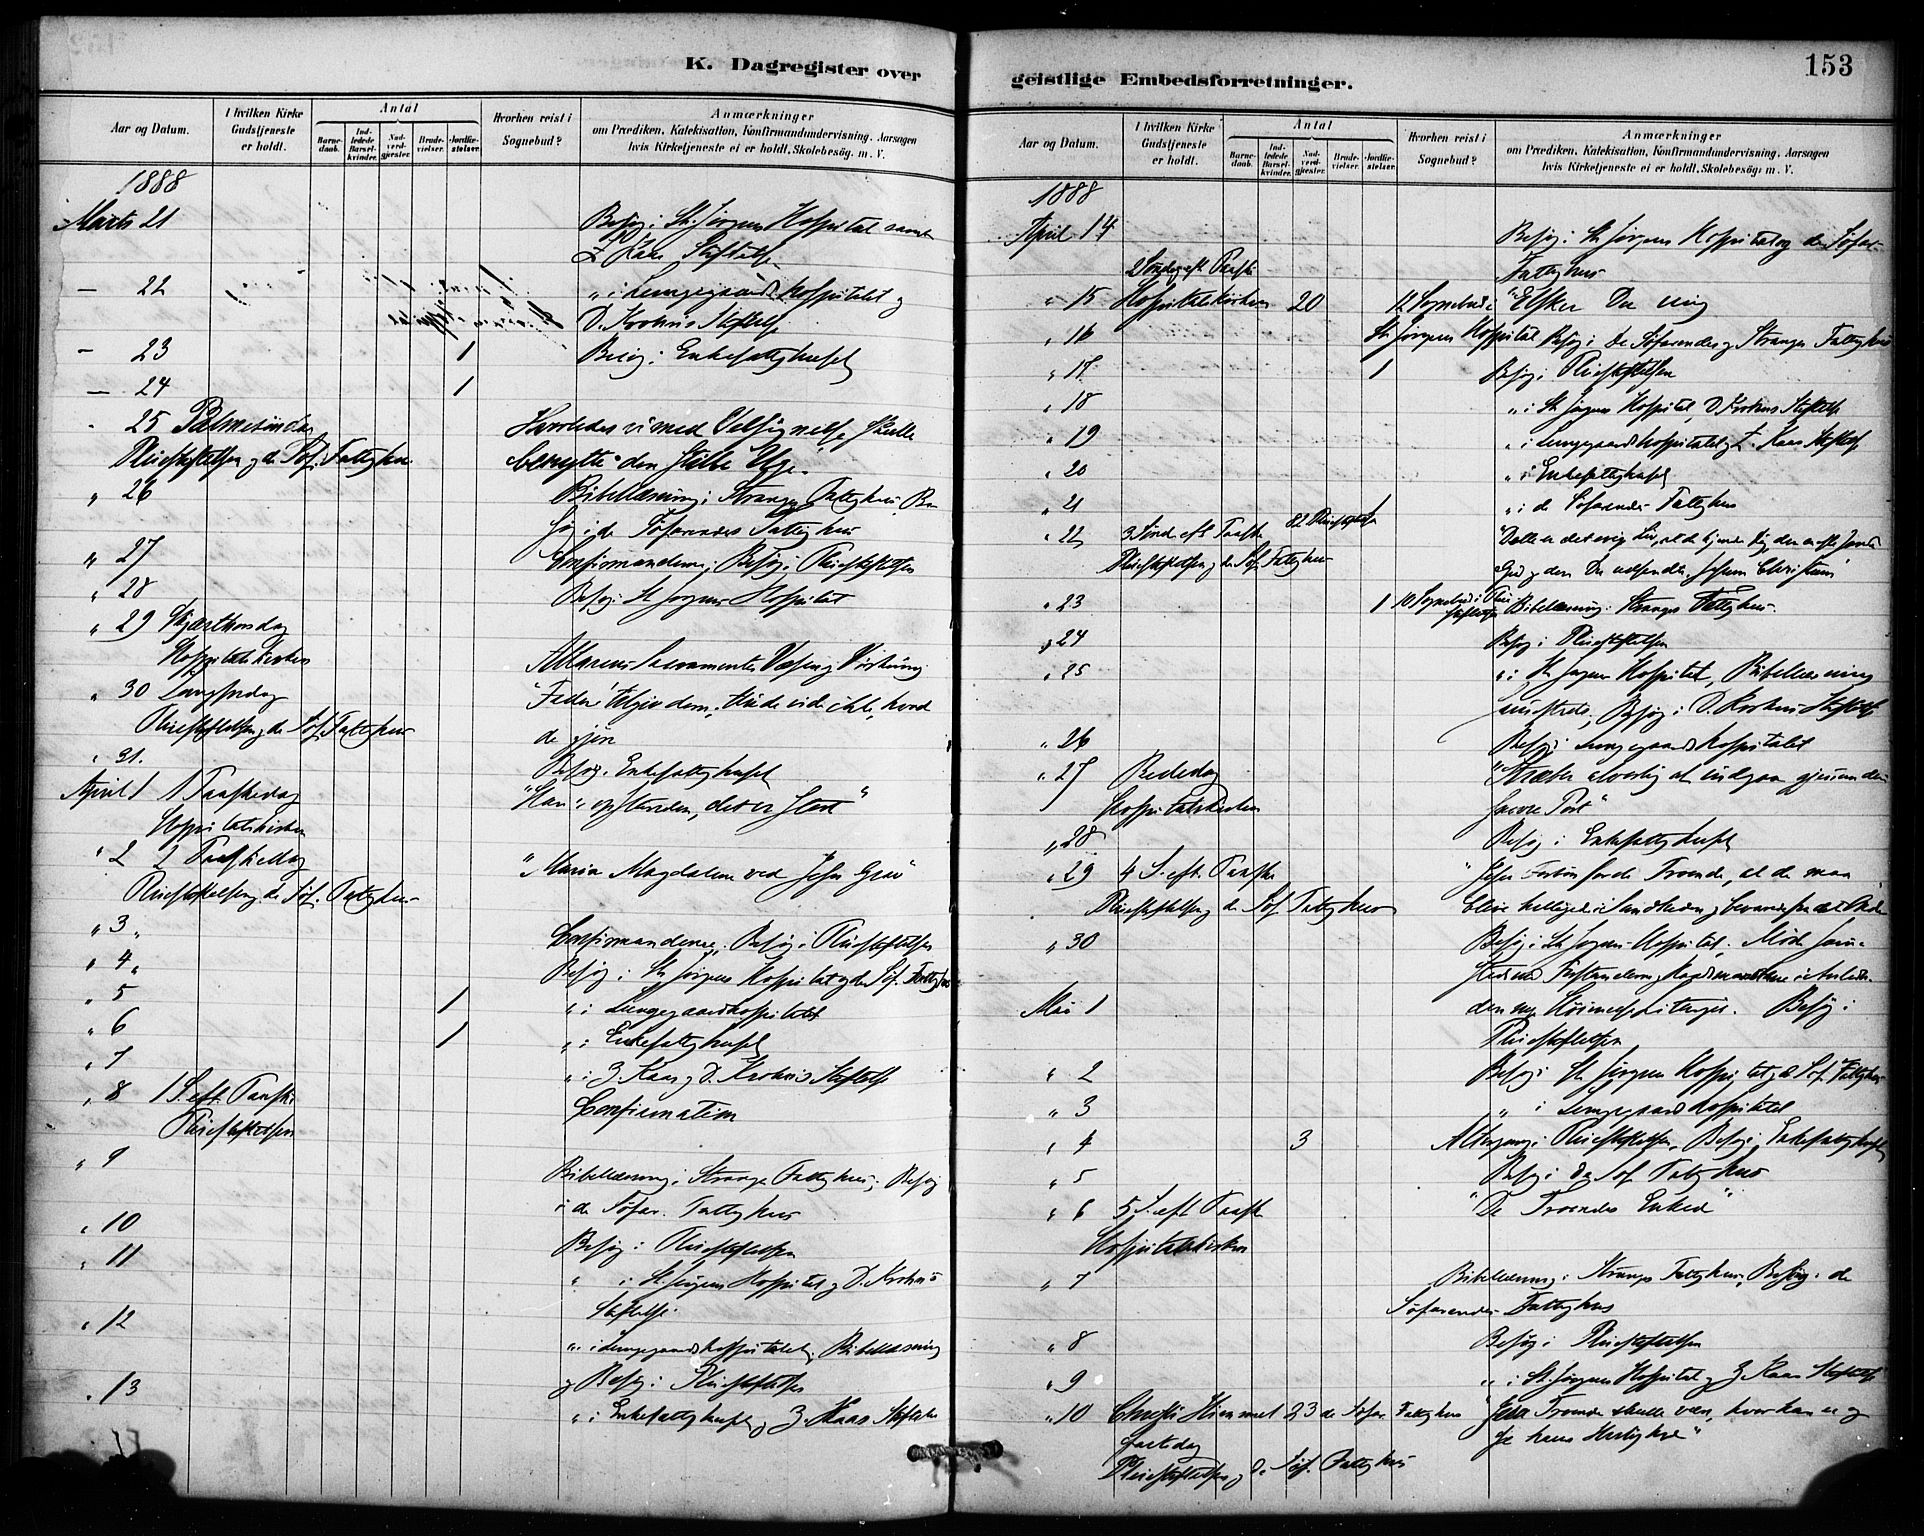 K. Dagregister over
Aar og Datum.
I hvilken Kirke Gudstjeneste er holdt.
Antal
Barnedaab.
Indledede Barselkvinder.
Nadverdgjester.
Brudevielser.
Jordfæstelser.
Hvorhen reist i Sognebud?
Anmærkninger
om Prædiken, Katekisation, Konfirmandundervisning, Aarsagen
hvis Kirketjeneste ei er holdt, Skolebesøg m. V.
1888
Marts 21 Besøg i St. Jørgens Hospital samt
Z. Kaas Stiftelse
— 22 " i Lungegaardshospitalet og
D. Krohns Stiftelse
— 23 1 Besøg i Enkefattighuset
— 24 1
" 25 Palmesøndag Hvorledes vi med Velsignelse skulle
Pleiestiftelsen og de Søf. Fattighus benytte den stille Uge.
" 26 Bibellæsning i Stranges Fattighus, Be-
søg i de Søfarendes Fattighus
" 27 Confirmanderne; Besøg i Pleiestiftelsen
" 28 Besøg i St Jørgens Hospital
" 29 Skjærthorsdag
Hospitalskirken Altarens Sacramentes Væsen og Virkning
" 30 Langfredag Fader forlad dem, thi de vide ikke, hvad
Pleiestiftelsen og de Søf. Fattighus de gjøre
" 31. Besøg i Enkefattighuset
April 1 1 Paaskedag "Han er opstanden, det er
Hospitalskirken
" 2 2 Paaskedag "Maria Magdalene ved Jesu Grav"
Pleiestiftelsen og de Søf. Fattighus
" 3 Confirmanderne. Besøg i Pleiestiftelsen
" 4 Besøg i St. Jørgens Hospital og de Søf. Fattighus
" 5 1 " i Lungegaardshospitalet
" 6 1 " i Enkefattighuset
" 7 " i Z. Kaas og D. Krohns Stiftelse
" 8 1 S. eft. Paaske Confirmation
Pleiestiftelsen
" 9 Bibellæsning i Stranges Fattighus; Besøg
i de Søfar. Fattighus
" 10 Besøg i Pleiestiftelsen
" 11 " i St. Jørgens Hospital og D. Krohns
Stiftelse
" 12 " i Lungegaardshospitalet, Bibellæsning
og Besøg i Pleiestiftelsen
" 13 " i Enkefattighuset og Z. Kaas Stiftelse
geistlige Embedsforretninger.
153
Aar og Datum.
I hvilken Kirke Gudstjeneste er holdt.
Antal
Barnedaab.
Indledede Barselkvinder.
Nadverdgjester.
Brudevielser.
Jordfæstelser.
Hvorhen reist i Sognebud?
Anmærkninger
om Prædiken, Katekisation, Konfirmandundervisning, Aarsagen
hvis Kirketjeneste ei er holdt, Skolebesøg m. V.
1888
April 14 Besøg i St Jørgens Hospital og de Søfar.
2 Søndag eft. Paaske Fattighus
" 15 Hospitalskirken 20 12 Sognebud i "Elsker Du mig
" 16 St. Jørgens Hospital Besøg i De Søfarendes og Stranges Fattighus
" 17 1 Besøg i Pleiestiftelsen
" 18 " i St. Jørgens Hospital, D. Krohns Stiftelse
" 19 " i Lungegaardshospitalet og Z. Kaas Stiftelse
" 20 " i Enkefattighuset
" 21 1 " i de Søfarendes Fattighus
" 22 3 Sønd. eft. Paaske 82 Pleiestiftelsen "Dette er det evige Liv, at de kjende dig, den eneste sande
Pleiestiftelsen og de Søf. Fattighus Gud og den Du udsendte, Jesum Christum"
" 23 1 10 Sognebud i Pleiestiftelsen Bibellæsning i Stranges Fattighus.
" 24 Besøg i Pleiestiftelsen
" 25 " i St. Jørgens Hospital, Bibellæsning
sammesteds, Besøg i D. Krohns Stiftelse
" 26 Besøg i Lungegaardshospitalet
" 27 Bededag "Stræber alvorlig at indgaa gjennem den
Hospitalskirken snevre Port"
" 28 Besøg i Enkefattighuset
" 29 4 S. eft. Paaske "Jesu Forbøn for de Troende, at de maa
Pleiestiftelsen og de Søf. Fattighus blive helligede i Sandheden og bevares fra det Onde
" 30 Besøg i St. Jørgens Hospital. Møde
Mai 1 Besøg i
Pleiestiftelsen
" 2 Besøg i St. Jørgens Hospital og de Søf. Fattighus
" 3 " i Lungegaardshospitalet
" 4 3 Altergang i Pleiestiftelsen, Besøg i Enkefattighuset
" 5 Besøg i de Søf. Fattighus
" 6 5 S. eft. Paaske "De Troendes Enhed"
Hospitalskirken
" 7 Bibellæsning i Stranges Fattighus, Besøg i de
Søfarendes Fattighus
" 8 Besøg i Pleiestiftelsen
" 9 " i St. Jørgens Hospital og Z. Kaas Stiftelse
" 10 Christi Himmel- 23 de Søfar. Fattighus "Jesu Troende skulle være, hvor han er og
fartsdag se hans Herlighed"
Pleiestiftelsen og de Søf. Fattighus